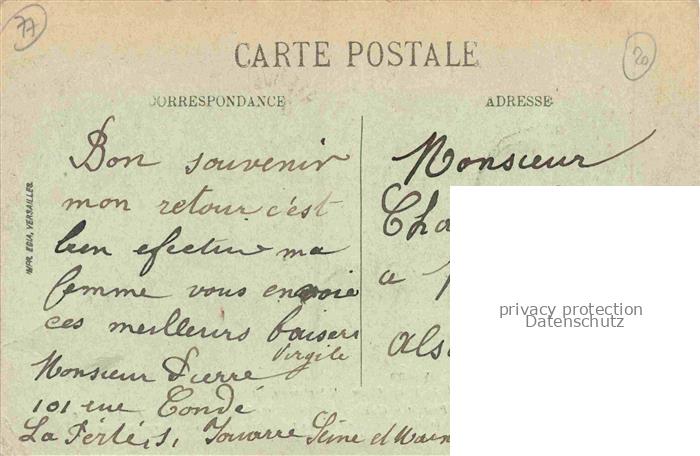 77
20
CARTE POSTALE
CORRESPONDANCE
ADRESSE
Bon souvenir
mon retour c'est
bien efectue ma
femme vous envoie
ces meilleurs baisers
Virgile
Monsieur Pierre
101 rue Condé
La Férté, S, Jouarre Seine et Marn
Monsieur
Cha
a
als
IMP. EDIA, VERSAILLES
privacy protection
Datenschutz